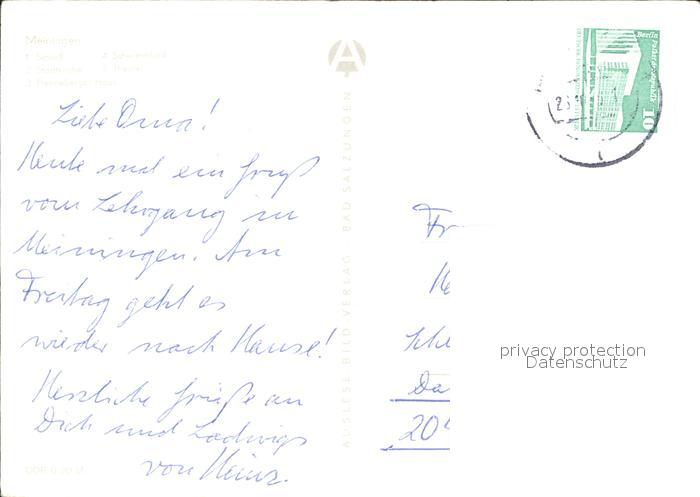 Meiningen
1. Schloß 4. Schwimmbad
2. Stadtkirche 5. Theater
3. Henneberger Haus
Liebe Oma!
Heute mal ein Gruß
vom Lehrgang in
Meiningen. Am
Freitag geht es
wieder nach Hause!
Herzliche Grüße an
Dich und Ludwigs
von Heinz.
AUSLESE BILD VERLAG BAD SALZUNGEN
Berlin Palast der Republik
10
Fr
He
Sche
Da
20
privacy protection
Datenschutz